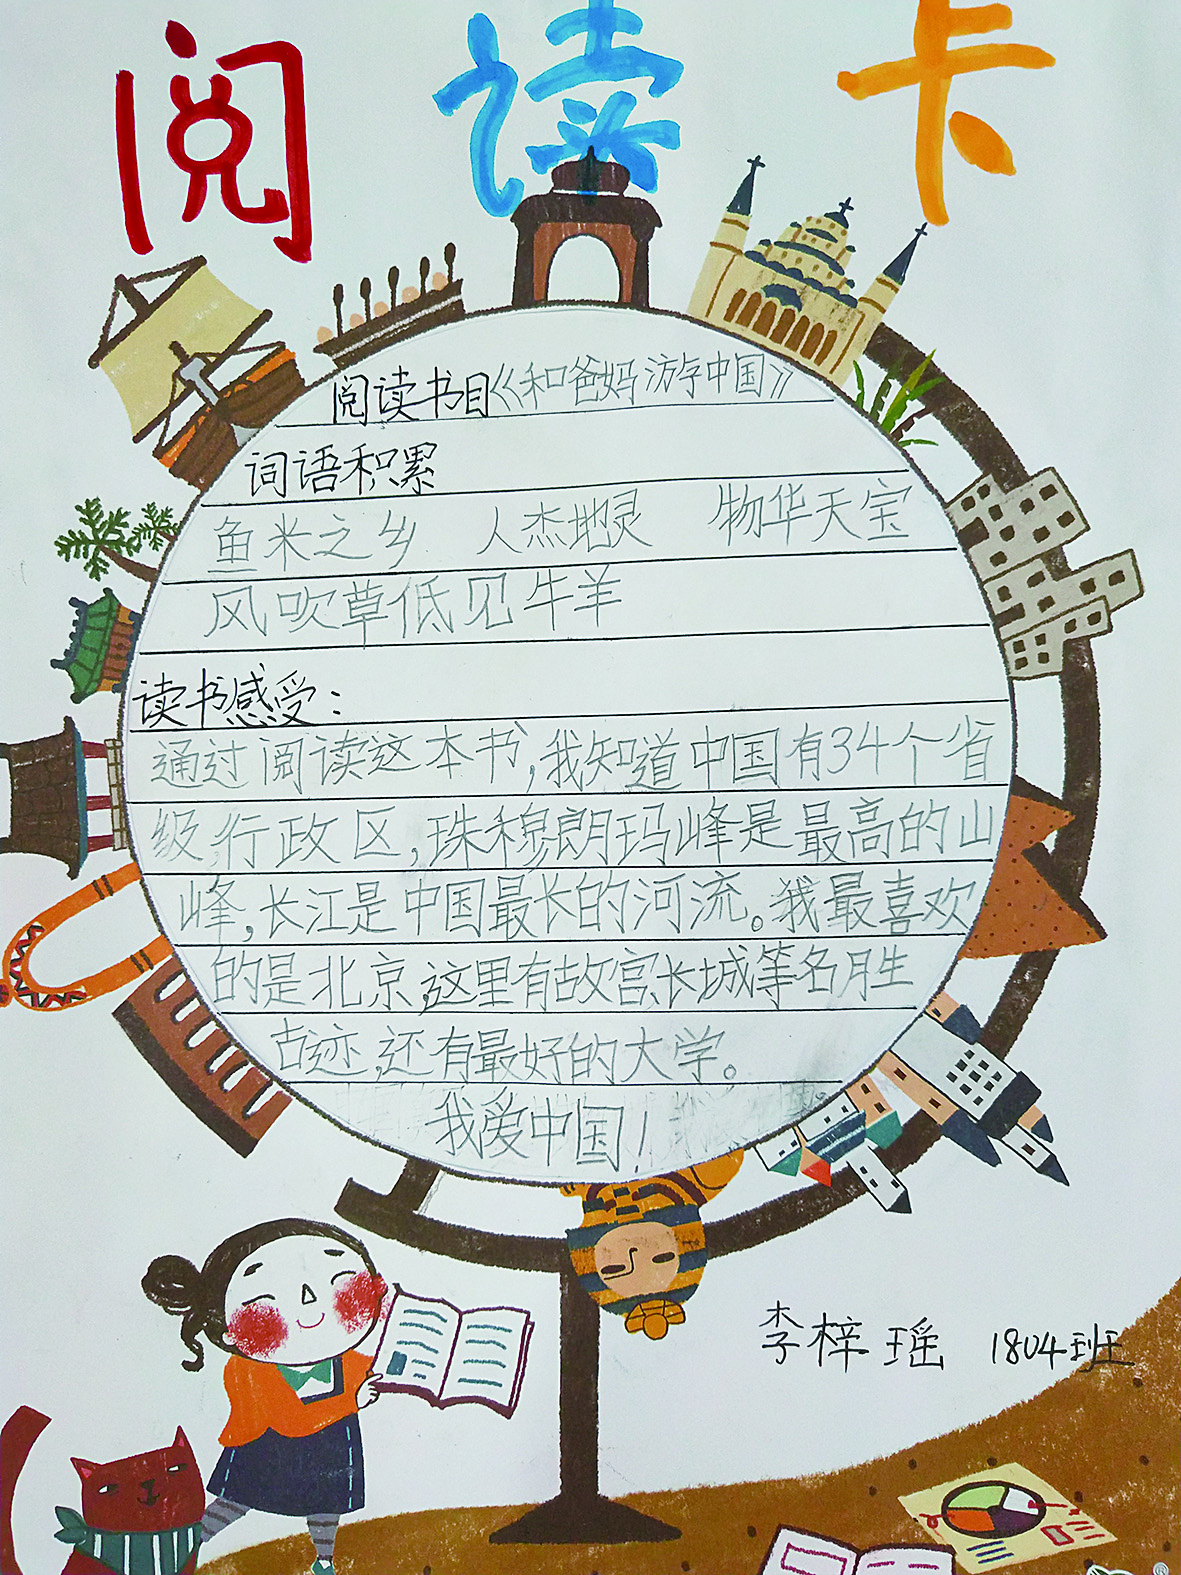 阅读卡
阅读书目《和爸妈游中国》
词语积累
鱼米之乡 人杰地灵 物华天宝
风吹草低见牛羊
读书感受：
通过阅读这本书，我知道中国有34个省
级行政区，珠穆朗玛峰是最高的山
峰，长江是中国最长的河流。我最喜欢
的是北京，这里有故宫、长城等名胜
古迹，还有最好的大学。
我爱中国！
李梓瑶 1804班